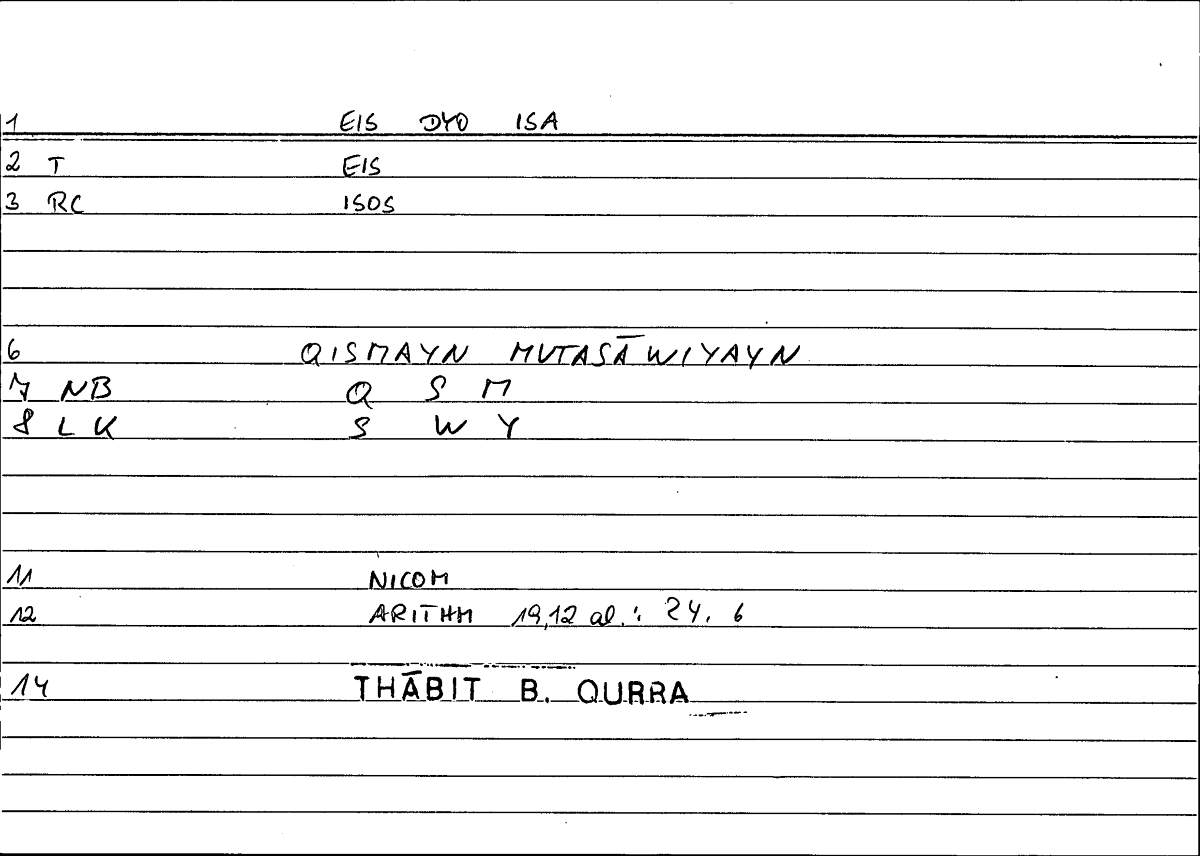 1 EIS DYO ISA
2 T EIS
3 RC ISOS
6 QISMAYN MUTASĀWIYAYN
7 NB Q S M
8 LK S W Y
11 NICOM
12 ARITHM 19,12 al.: 24. 6
14 THĀBIT B. QURRA